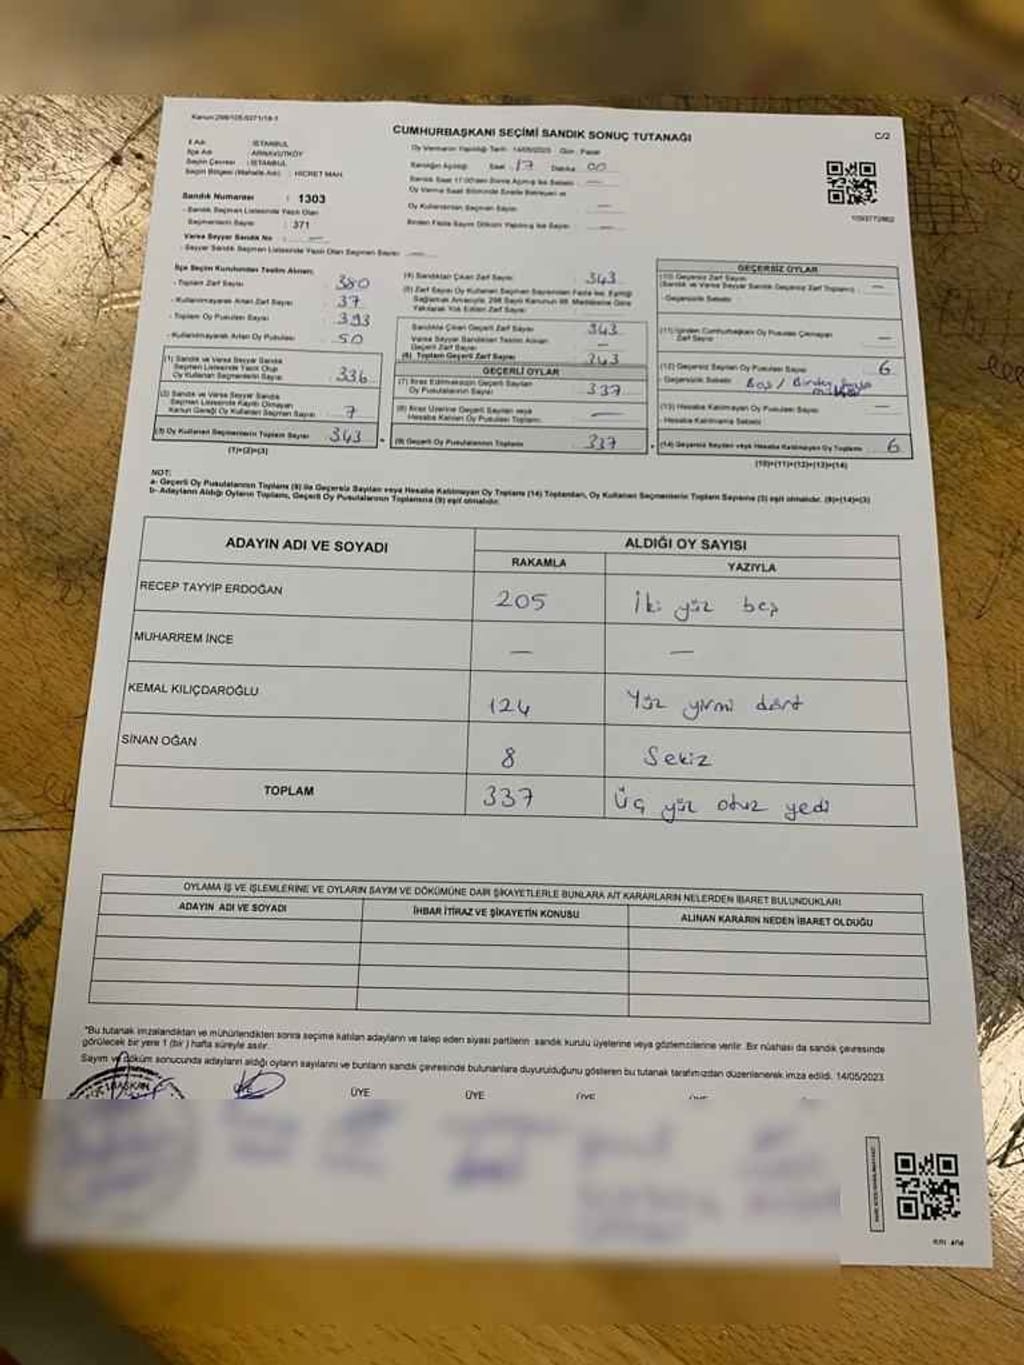 Kanun:298/105:6271/18-1
CUMHURBAŞKANI SEÇİMİ SANDIK SONUÇ TUTANAĞI
C/2
İl Adı : İSTANBUL
İlçe Adı : ARNAVUTKÖY
Seçim Çevresi : İSTANBUL
Seçim Bölgesi (Mahalle Adı) : HİCRET MAH.
Sandık Numarası : 1303
- Sandık Seçmen Listesinde Yazılı Olan
Seçmenlerin Sayısı : 371
Varsa Seyyar Sandık No : —
- Seyyar Sandık Seçmen Listesinde Yazılı Olan Seçmen Sayısı : —
Oy Vermenin Yapıldığı Tarih : 14/05/2023 Gün : Pazar
Sandığın Açıldığı Saat : 17 Dakika 00
Sandık Saat 17:00'den Sonra Açılmış İse Sebebi : —
Oy Verme Saati Bitiminde Sırada Bekleyen ve
Oy Kullandırılan Seçmen Sayısı : —
Birden Fazla Sayım Döküm Yapılmış İse Sayısı : —
İlçe Seçim Kurulundan Teslim Alınan;
- Toplam Zarf Sayısı 380
- Kullanılmayarak Artan Zarf Sayısı 37
- Toplam Oy Pusulası Sayısı 393
- Kullanılmayarak Artan Oy Pusulası 50
(1) Sandık ve Varsa Seyyar Sandık
Seçmen Listesinde Yazılı Olup
Oy Kullanan Seçmenlerin Sayısı 336
(2) Sandık ve Varsa Seyyar Sandık
Seçmen Listesinde Kayıtlı Olmayan
Kanun Gereği Oy Kullanan Seçmen Sayısı 7
(3) Oy Kullanan Seçmenlerin Toplam Sayısı 343
(1)+(2)=(3)
(4) Sandıktan Çıkan Zarf Sayısı 343
(5) Zarf Sayısı Oy Kullanan Seçmen Sayısından Fazla İse, Eşitliği
Sağlamak Amacıyla, 298 Sayılı Kanunun 98. Maddesine Göre
Yakılarak Yok Edilen Zarf Sayısı
Sandıkta Çıkan Geçerli Zarf Sayısı 343
Varsa Seyyar Sandıktan Teslim Alınan
Geçerli Zarf Sayısı —
(6) Toplam Geçerli Zarf Sayısı 343
GEÇERLİ OYLAR
(7) İtiraz Edilmeksizin Geçerli Sayılan
Oy Pusulalarının Sayısı 337
(8) İtiraz Üzerine Geçerli Sayılan veya
Hesaba Katılan Oy Pusulası Toplamı —
(9) Geçerli Oy Pusulalarının Toplamı 337
GEÇERSİZ OYLAR
(10) Geçersiz Zarf Sayısı
(Sandık ve Varsa Seyyar Sandık Geçersiz Zarf Toplamı) —
- Geçersizlik Sebebi
(11) İçinden Cumhurbaşkanı Oy Pusulası Çıkmayan
Zarf Sayısı —
(12) Geçersiz Sayılan Oy Pusulası Sayısı 6
- Geçersizlik Sebebi Boş / Birden fazla
(13) Hesaba Katılmayan Oy Pusulası Sayısı —
- Hesaba Katılmama Sebebi
(14) Geçersiz Sayılan veya Hesaba Katılmayan Oy Toplamı 6
(10)+(11)+(12)+(13)=(14)
NOT:
a- Geçerli Oy Pusulalarının Toplamı (9) ile Geçersiz Sayılan veya Hesaba Katılmayan Oy Toplamı (14) Toplamları, Oy Kullanan Seçmenlerin Toplam Sayısına (3) eşit olmalıdır. (9)+(14)=(3)
b- Adayların Aldığı Oyların Toplamı, Geçerli Oy Pusulalarının Toplamına (9) eşit olmalıdır.
ADAYIN ADI VE SOYADI
ALDIĞI OY SAYISI
RAKAMLA
YAZIYLA
RECEP TAYYİP ERDOĞAN 205 İki yüz beş
MUHARREM İNCE — —
KEMAL KILIÇDAROĞLU 124 Yüz yirmi dört
SİNAN OĞAN 8 Sekiz
TOPLAM 337 Üç yüz otuz yedi
OYLAMA İŞ VE İŞLEMLERİNE VE OYLARIN SAYIM VE DÖKÜMÜNE DAİR ŞİKAYETLERLE BUNLARA AİT KARARLARIN NELERDEN İBARET BULUNDUKLARI
ADAYIN ADI VE SOYADI
İHBAR İTİRAZ VE ŞİKAYETİN KONUSU
ALINAN KARARIN NEDEN İBARET OLDUĞU
*Bu tutanak imzalandıktan ve mühürlendikten sonra seçime katılan adayların ve talep eden siyasi partilerin sandık kurulu üyelerine veya gözlemcilerine verilir. Bir nüshası da sandık çevresinde
görülecek bir yere 1 (bir) hafta süreyle asılır.
Sayım ve döküm sonucunda adayların aldığı oyların sayılarını ve bunların sandık çevresinde bulunanlara duyurulduğunu gösteren bu tutanak tarafımızdan düzenlenerek imza edildi. 14/05/2023
BAŞKAN
ÜYE
ÜYE
ÜYE
ÜYE